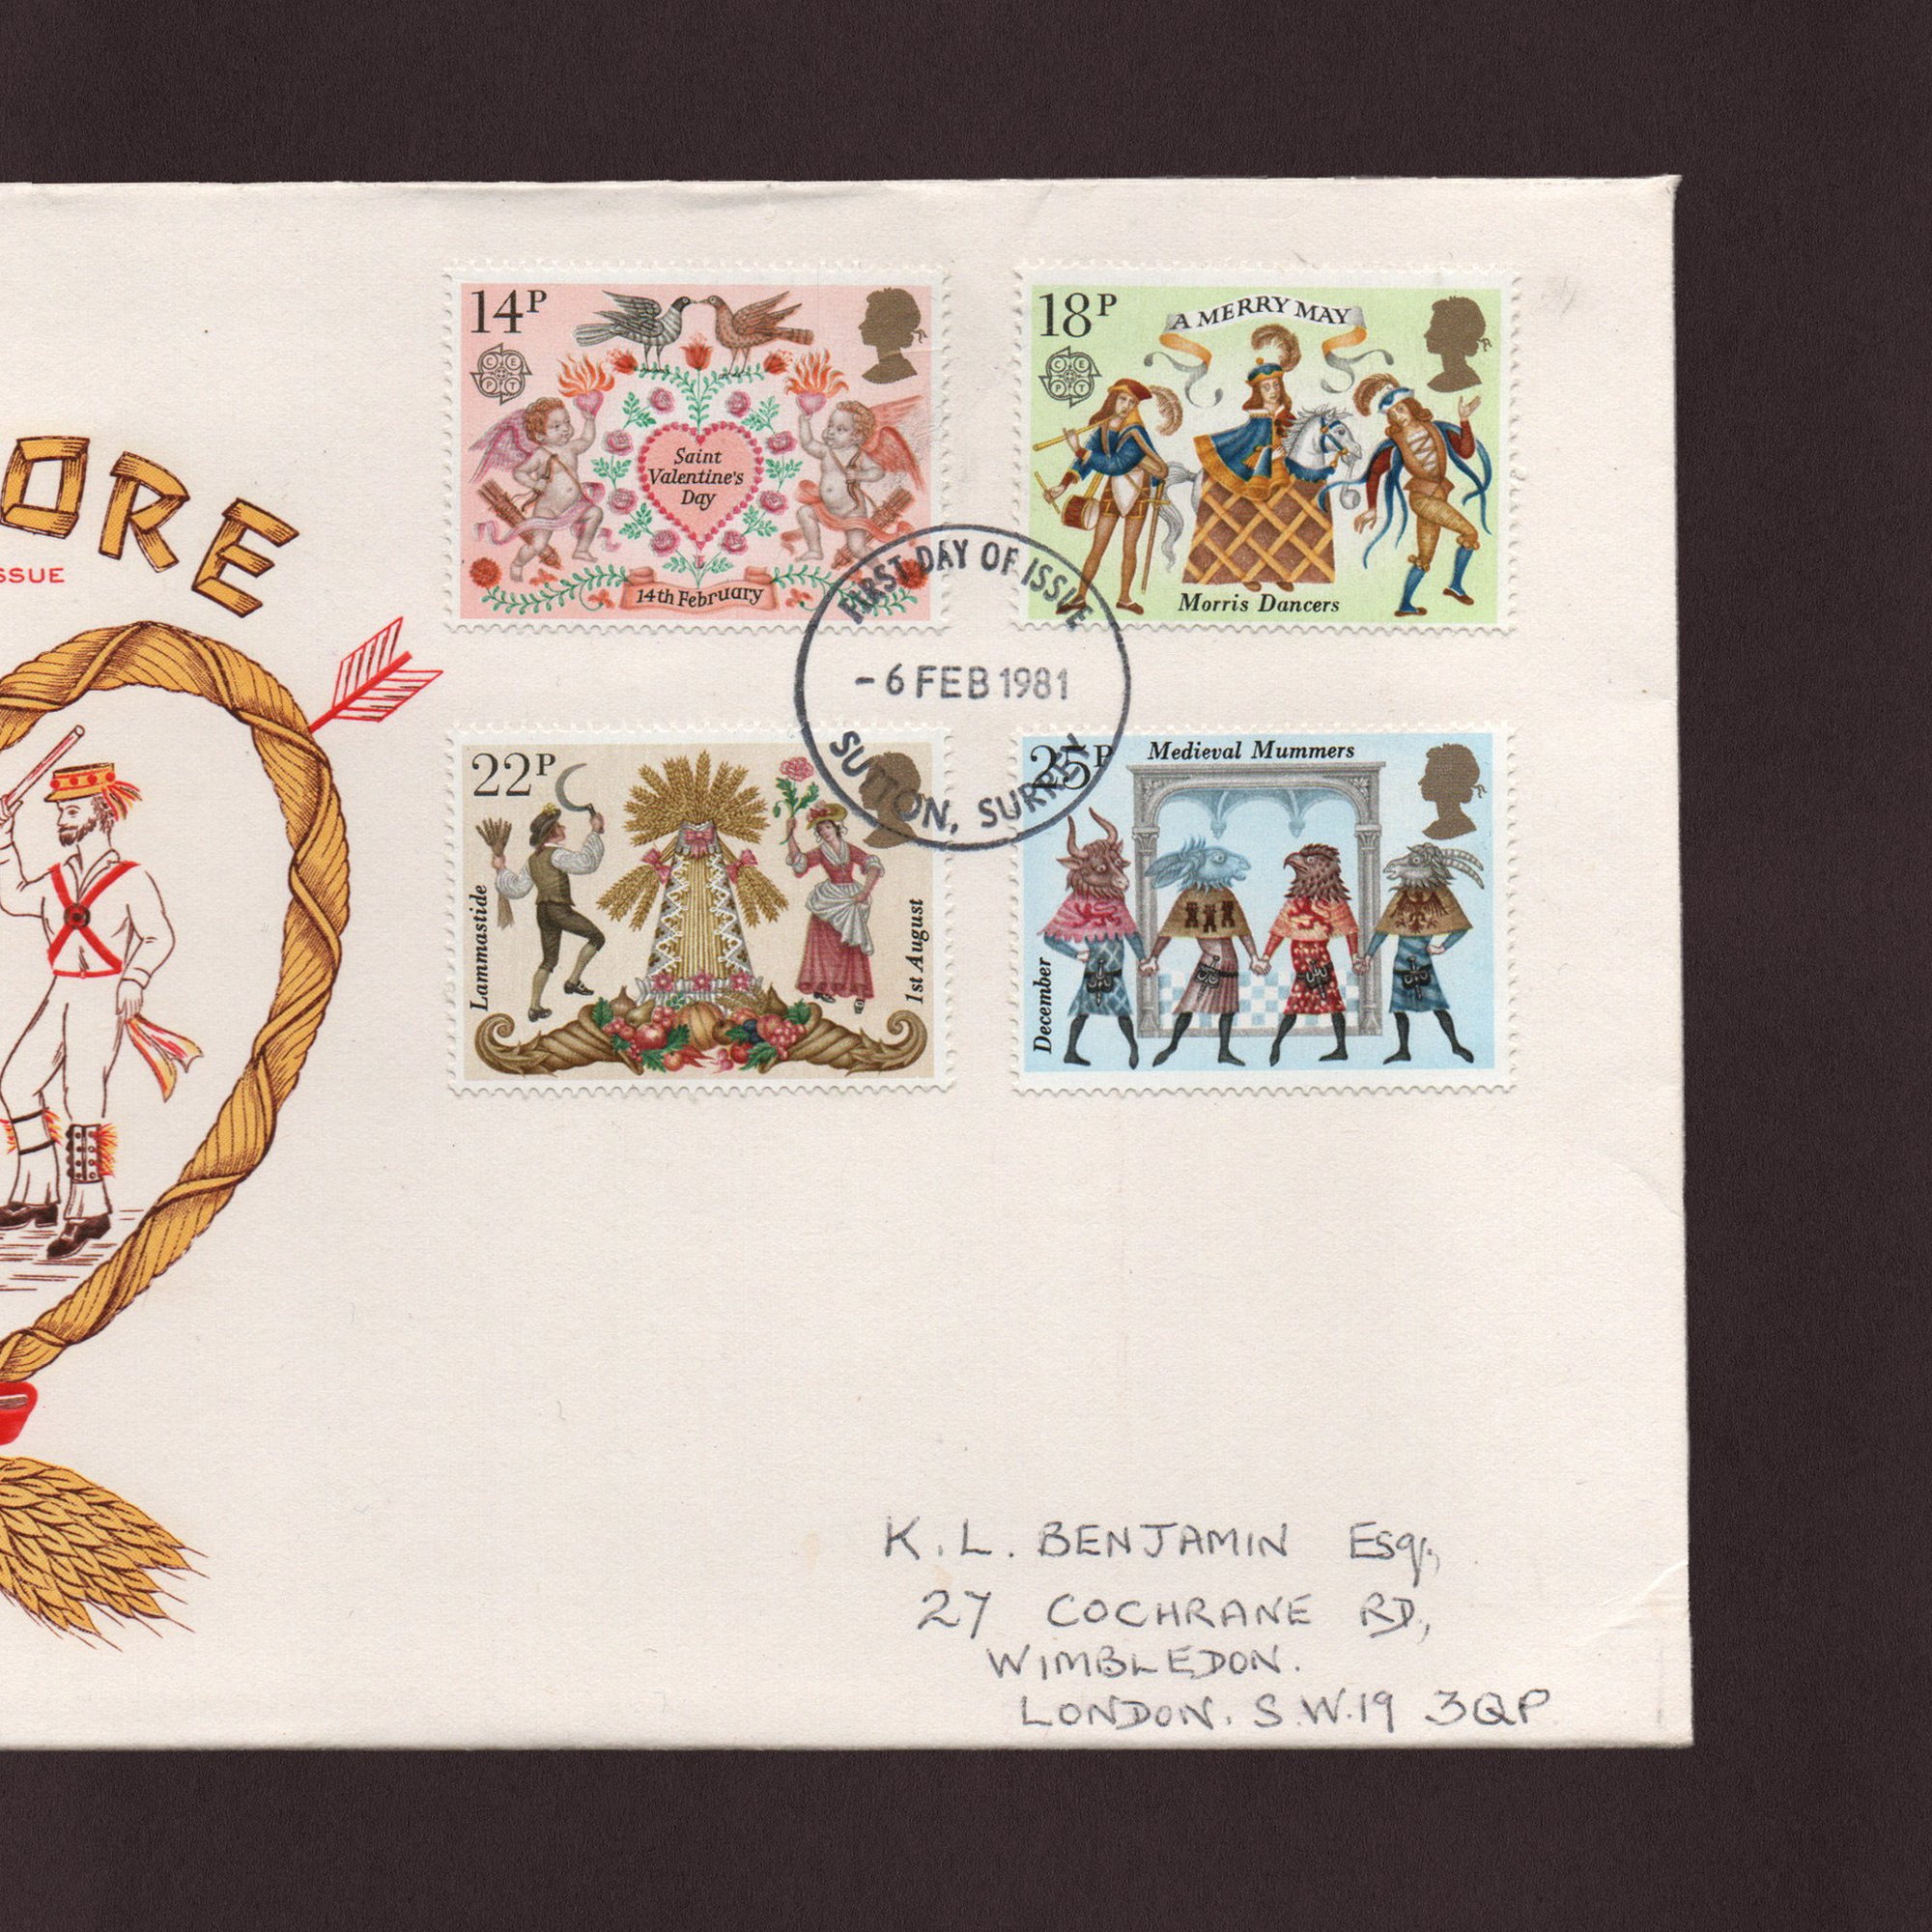 ORE
SSUE
14P
CEPT
Saint
Valentine's
Day
14th February
18P
CEPT
A MERRY MAY
Morris Dancers
FIRST DAY OF ISSUE
- 6 FEB 1981
SUTTON, SURREY
22P
Lammastide
1st August
25P
Medieval Mummers
December
K. L. BENJAMIN Esq.,
27 COCHRANE RD,
WIMBLEDON.
LONDON. S.W.19 3QP